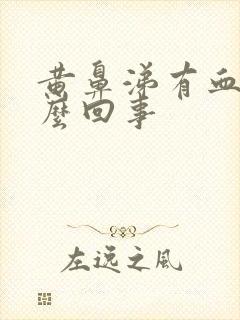 黄鼻涕有血
麼回事
左逸之风